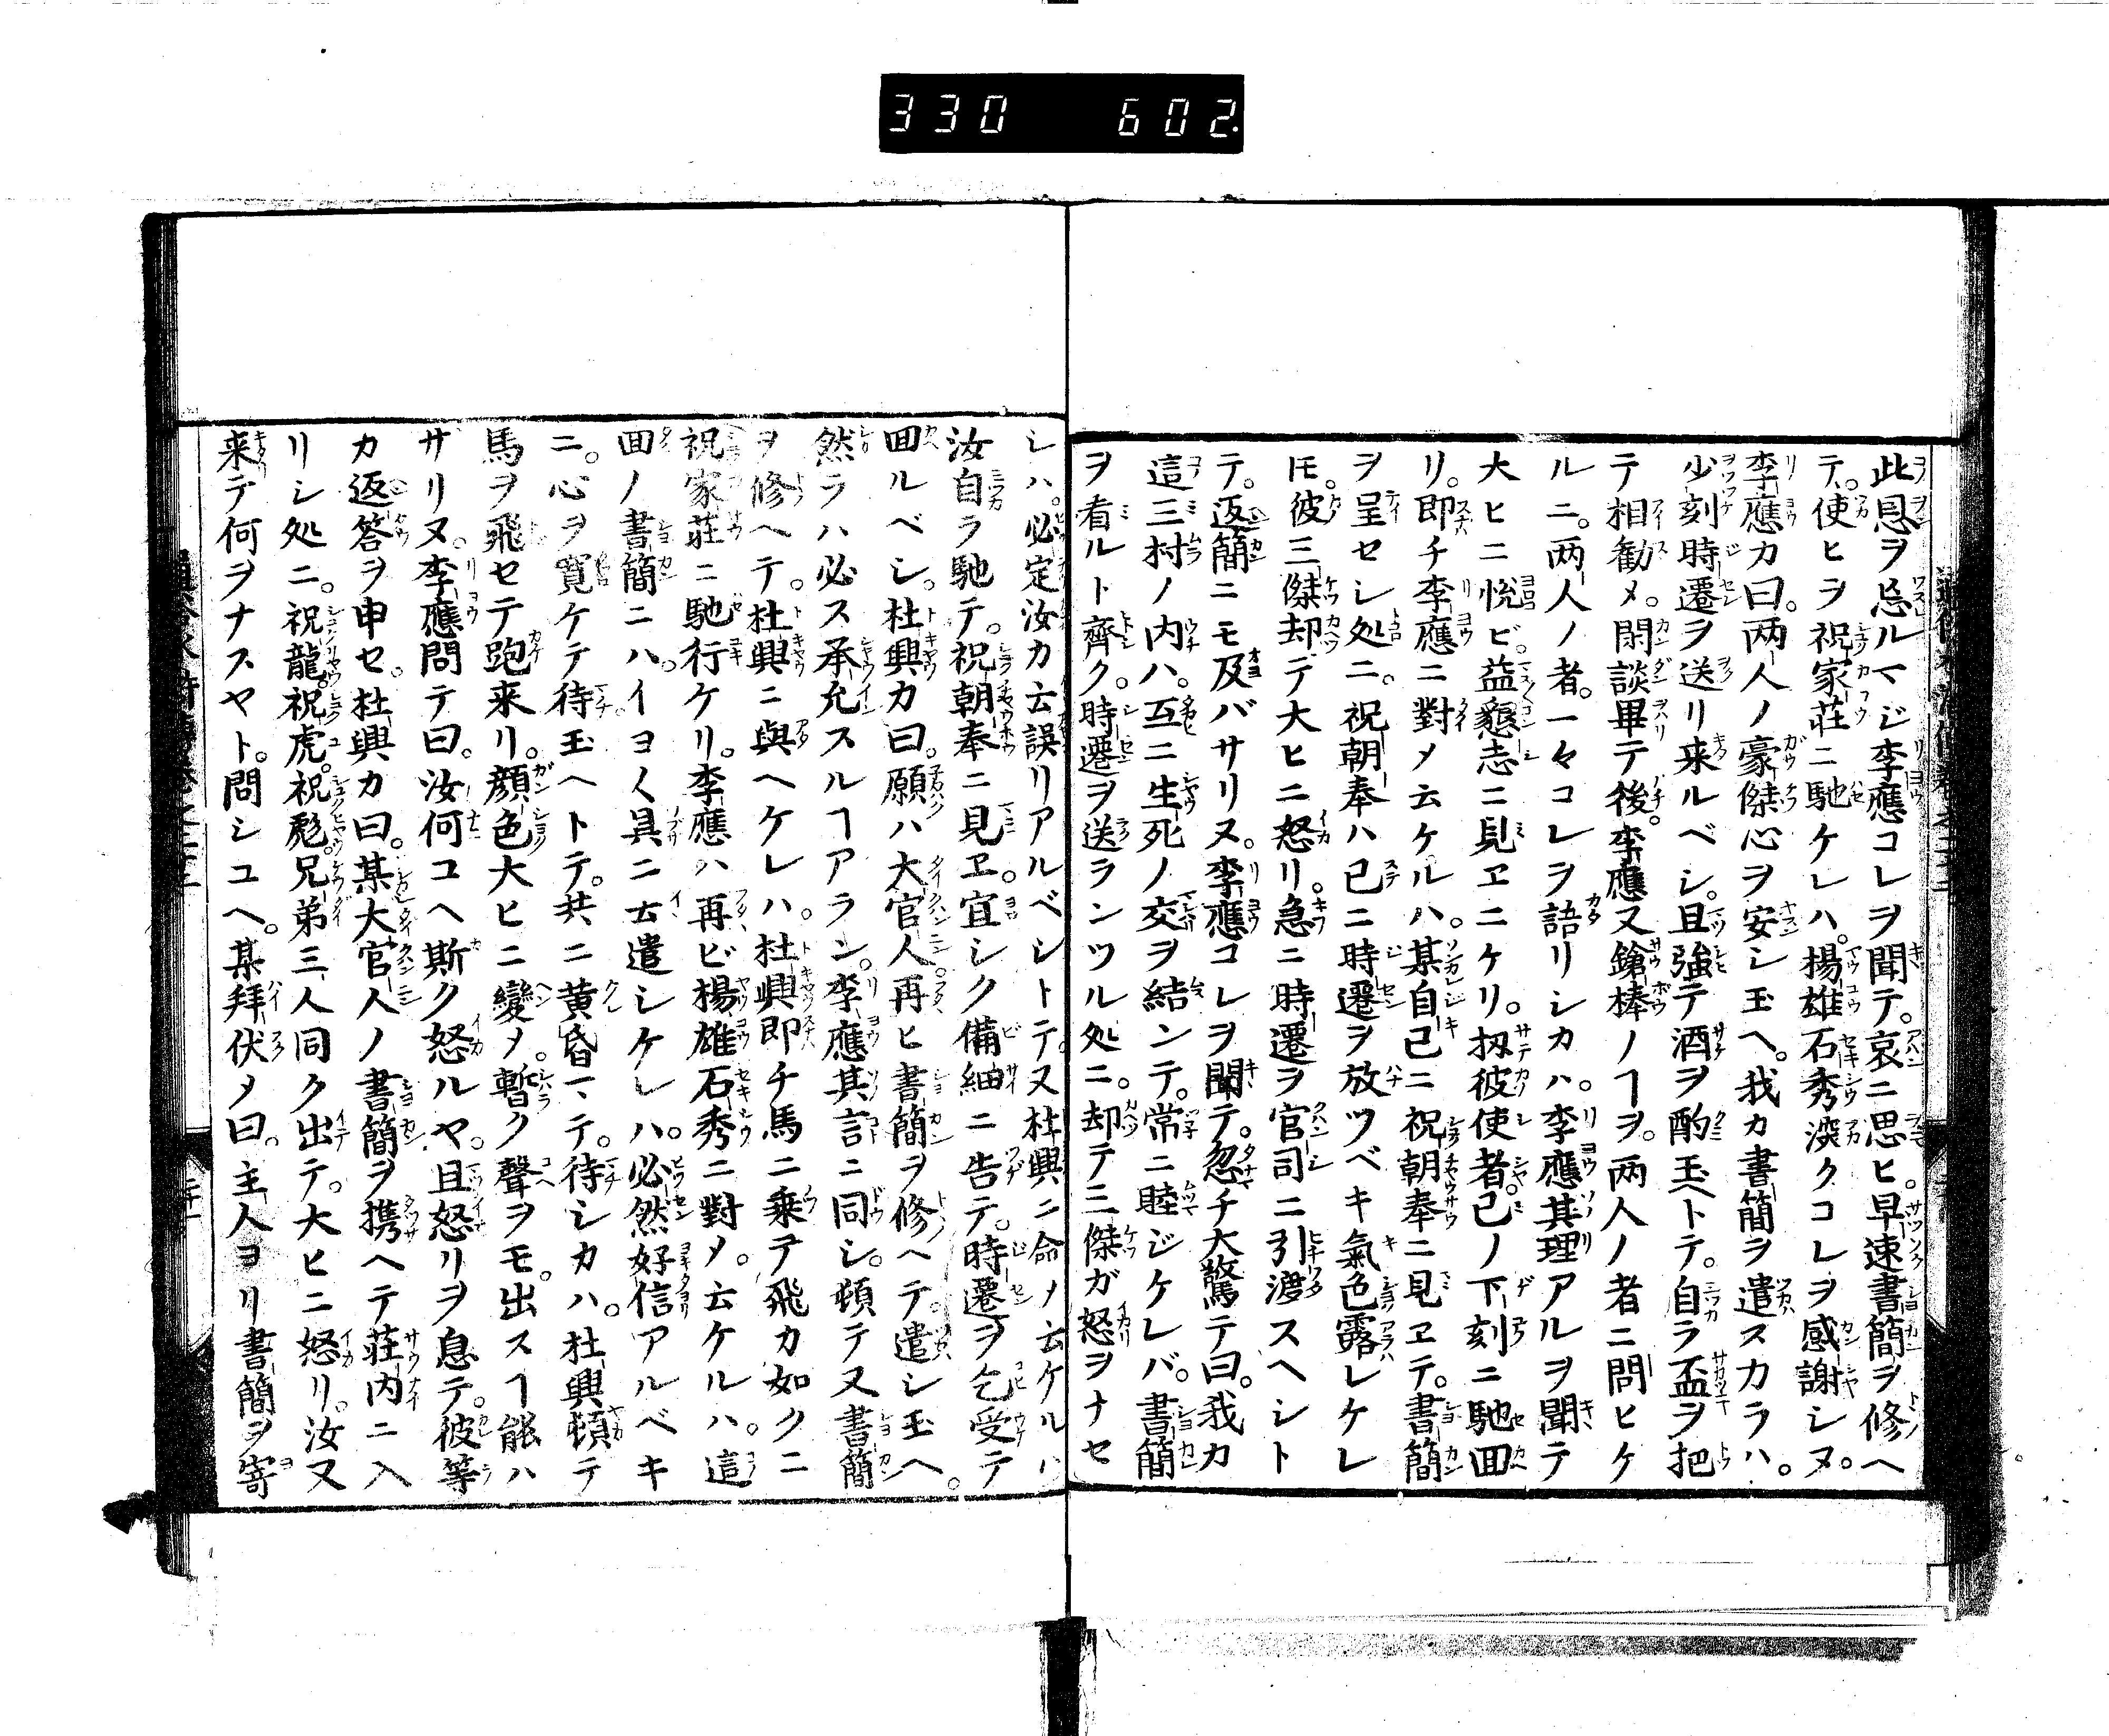 330 602.
此恩ヲ忘ルマジ李應コレヲ聞テ。哀ニ思ヒ。早速書簡ヲ修ヘ
テ。使ヒヲ祝家荘ニ馳ケレハ。楊雄石秀深クコレヲ感謝シヌ。
李應カ曰。两人ノ豪傑心ヲ安シ玉ヘ。我カ書簡ヲ遣スカラハ。
少刻時遷ヲ送リ来ルベシ。且強テ酒ヲ酌玉ヘトテ。自ラ盃ヲ把
テ相勧メ。閑談畢テ後。李應又鎗棒ノヿヲ。两人ノ者ニ問ヒケ
ルニ。两人ノ者。一々コレヲ語リシカハ。李應其理アルヲ聞テ
大ヒニ悦ビ。益懇志ニ見ヱニケリ。扨彼使者已ノ下刻ニ馳回
リ。即チ李應ニ對メ云ケルハ。某自己ニ祝朝奉ニ見ヱテ。書簡
ヲ呈セシ処ニ。祝朝奉ハ已ニ時遷ヲ放ツベキ氣色露レケレ
𪜈。彼三傑却テ大ヒニ怒リ。急ニ時遷ヲ官司ニ引渡スヘシト
テ。返簡ニモ及バサリヌ。李應コレヲ聞テ。忽チ大驚テ曰。我カ
這三村ノ内ハ。互ニ生死ノ交ヲ結ンテ。常ニ睦ジケレバ。書簡
ヲ看ルト齊ク。時遷ヲ送ランツル処ニ。却テ三傑ガ怒ヲナセ
シハ。必定汝カ云誤リアルベシトテ。又杜興ニ命メ云ケルハ
汝自ラ馳テ。祝朝奉ニ見ヱ。宜シク備細ニ告テ。時遷ヲ乞受テ
回ルベシ。杜興カ曰。願ハ大官人再ヒ書簡ヲ修ヘテ。遣シ玉ヘ。
然ラハ必ス承允スルヿアラン。李應其言ニ同シ。頓テ又書簡
ヲ修ヘテ。杜興ニ與ヘケレハ。杜興即チ馬ニ乗テ飛カ如クニ
祝家荘ニ馳行ケリ。李應ハ再ビ楊雄石秀ニ對メ。云ケルハ。這
回ノ書簡ニハ。イヨく具ニ云遣シケレハ。必然好信アルベキ
ニ。心ヲ寛ケテ待玉ヘトテ。共ニ黄昏マテ。待シカハ。杜興頓テ
馬ヲ飛セテ跑来リ。顔色大ヒニ變メ。暫ク聲ヲモ。出スヿ能ハ
サリヌ。李應問テ曰。汝何コヘ斯ク怒ルヤ。且怒リヲ息テ。彼等
カ返答ヲ申セ。杜興カ曰。某大官人ノ書簡ヲ携ヘテ荘内ニ入
リシ処ニ。祝龍。祝虎。祝彪。兄弟三人同ク出テ。大ヒニ怒リ。汝又
来テ何ヲナスヤト。問シユヘ。某拜伏メ曰。主人ヨリ書簡ヲ寄